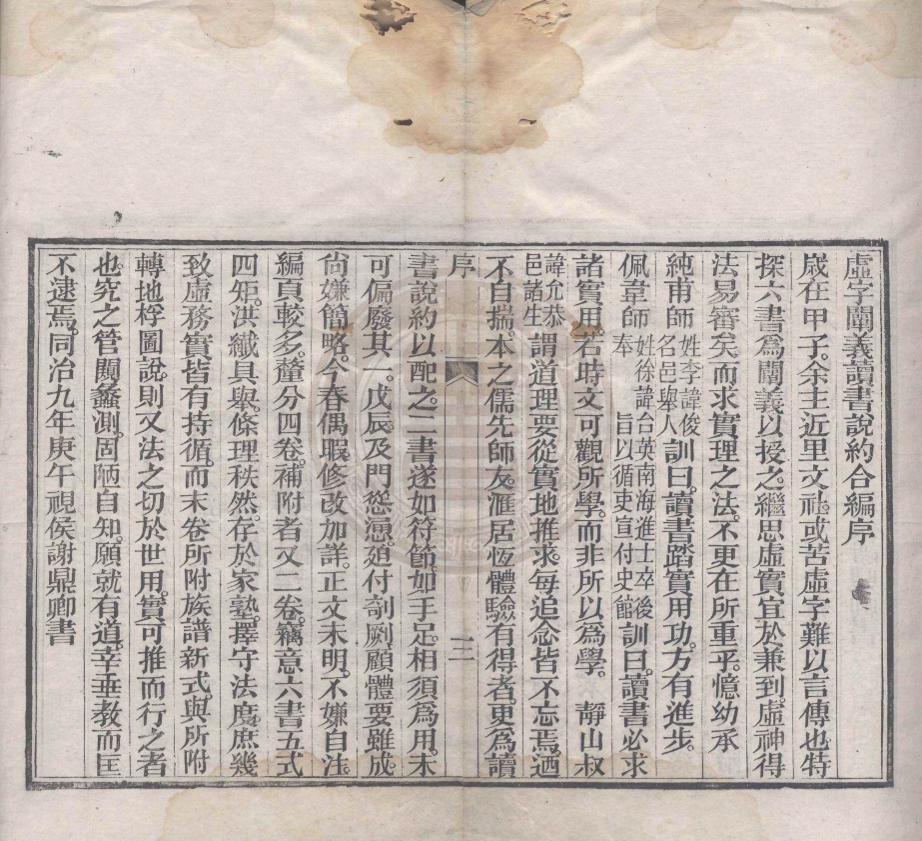 虛字闡義讀書說約合編序
歲在甲子。余主近里文社。或苦虛字難以言傳也。特
探六書爲闡義以授之。繼思虛實宜於兼到。虛神得
法易審矣。而求實理之法。不更在所重乎。憶幼承
純甫師姓李諱俊名邑舉人訓曰。讀書踏實用功。方有進步。
佩韋師姓徐諱台英南海進士卒後奉旨以循吏宣付史館訓曰。讀書必求
諸實用。若時文可觀所學。而非所以爲學。 靜山叔
諱允恭邑諸生謂道理要從實地推求。每追念皆不忘焉。迺
不自揣。本之儒先師友。滙居恆體驗有得者。更爲讀
序 三
書說約以配之。二書遂如符節。如手足。相須爲用。未
可偏廢其一。戊辰及門慫慂廹付剞劂。顧體要雖成。
尙嫌簡略。今春偶暇修改加詳。正文未明。不嫌自注。
編頁較多。釐分四卷。補附者又二卷。竊意六書五式
四矩。洪纖具舉。條理秩然。存於家塾。擇守法度。庶幾
致虛務實皆有持循。而末卷所附族譜新式。與所附
轉地桴圖說。則又法之切於世用。實可推而行之者
也。究之管闚蠡測。固陋自知。願就有道。幸垂敎而匡
不逮焉。同治九年庚午視侯謝鼎卿書